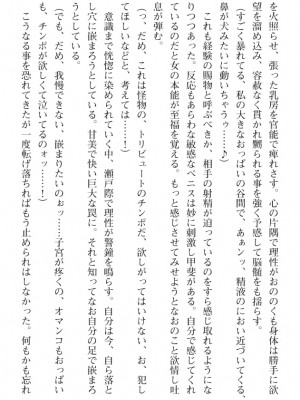 を火照らせ、張った乳房を官能で痺れさす。心の片隅で理性がおののくも身体は勝手に欲
望を溜め込み、容赦なく貫かれ嬲られる事を強く予感して脳髄をも揺らす。
（すごく暴れてる、私の大きなおっぱいの谷間で、あぁンッ、精液のにおい近づいてくる、
鼻が犬みたいに動いちゃうぅ……♪）
これも経験の賜物と呼ぶべきか、相手の射精が迫っているのをすら感じ取れるようにな
りつつあった。反応もあらわな敏感なペニスは妙に刺激し甲斐がある。自分で感じてくれ
ているのだと女の本能が至福を覚える。もっと感じさせてみせようとなおのこと欲情し吐
息が弾む。
（っ、だめ、これは怪物の、トリビュートのチンポだ、欲しがってはいけない、お、犯し
てほしいなどと、考えては……！）
意識まで恍惚に染められていく中、瀬戸際で理性が警鐘を鳴らす。自分は今、自ら落と
し穴に嵌まろうとしている。甘美で快い巨大な罠に、それと知ってなお自分の足で嵌まろ
うとしている。
（でも、だめ、我慢できない、嵌まりたいのぉッ……子宮が疼くの、オマンコもおっぱい
も、チンポが欲しくて泣いてるのォッ……！）
こうなる事を恐れてきたが一度転げ落ちればもう止められはしなかった。何もかも忘れ